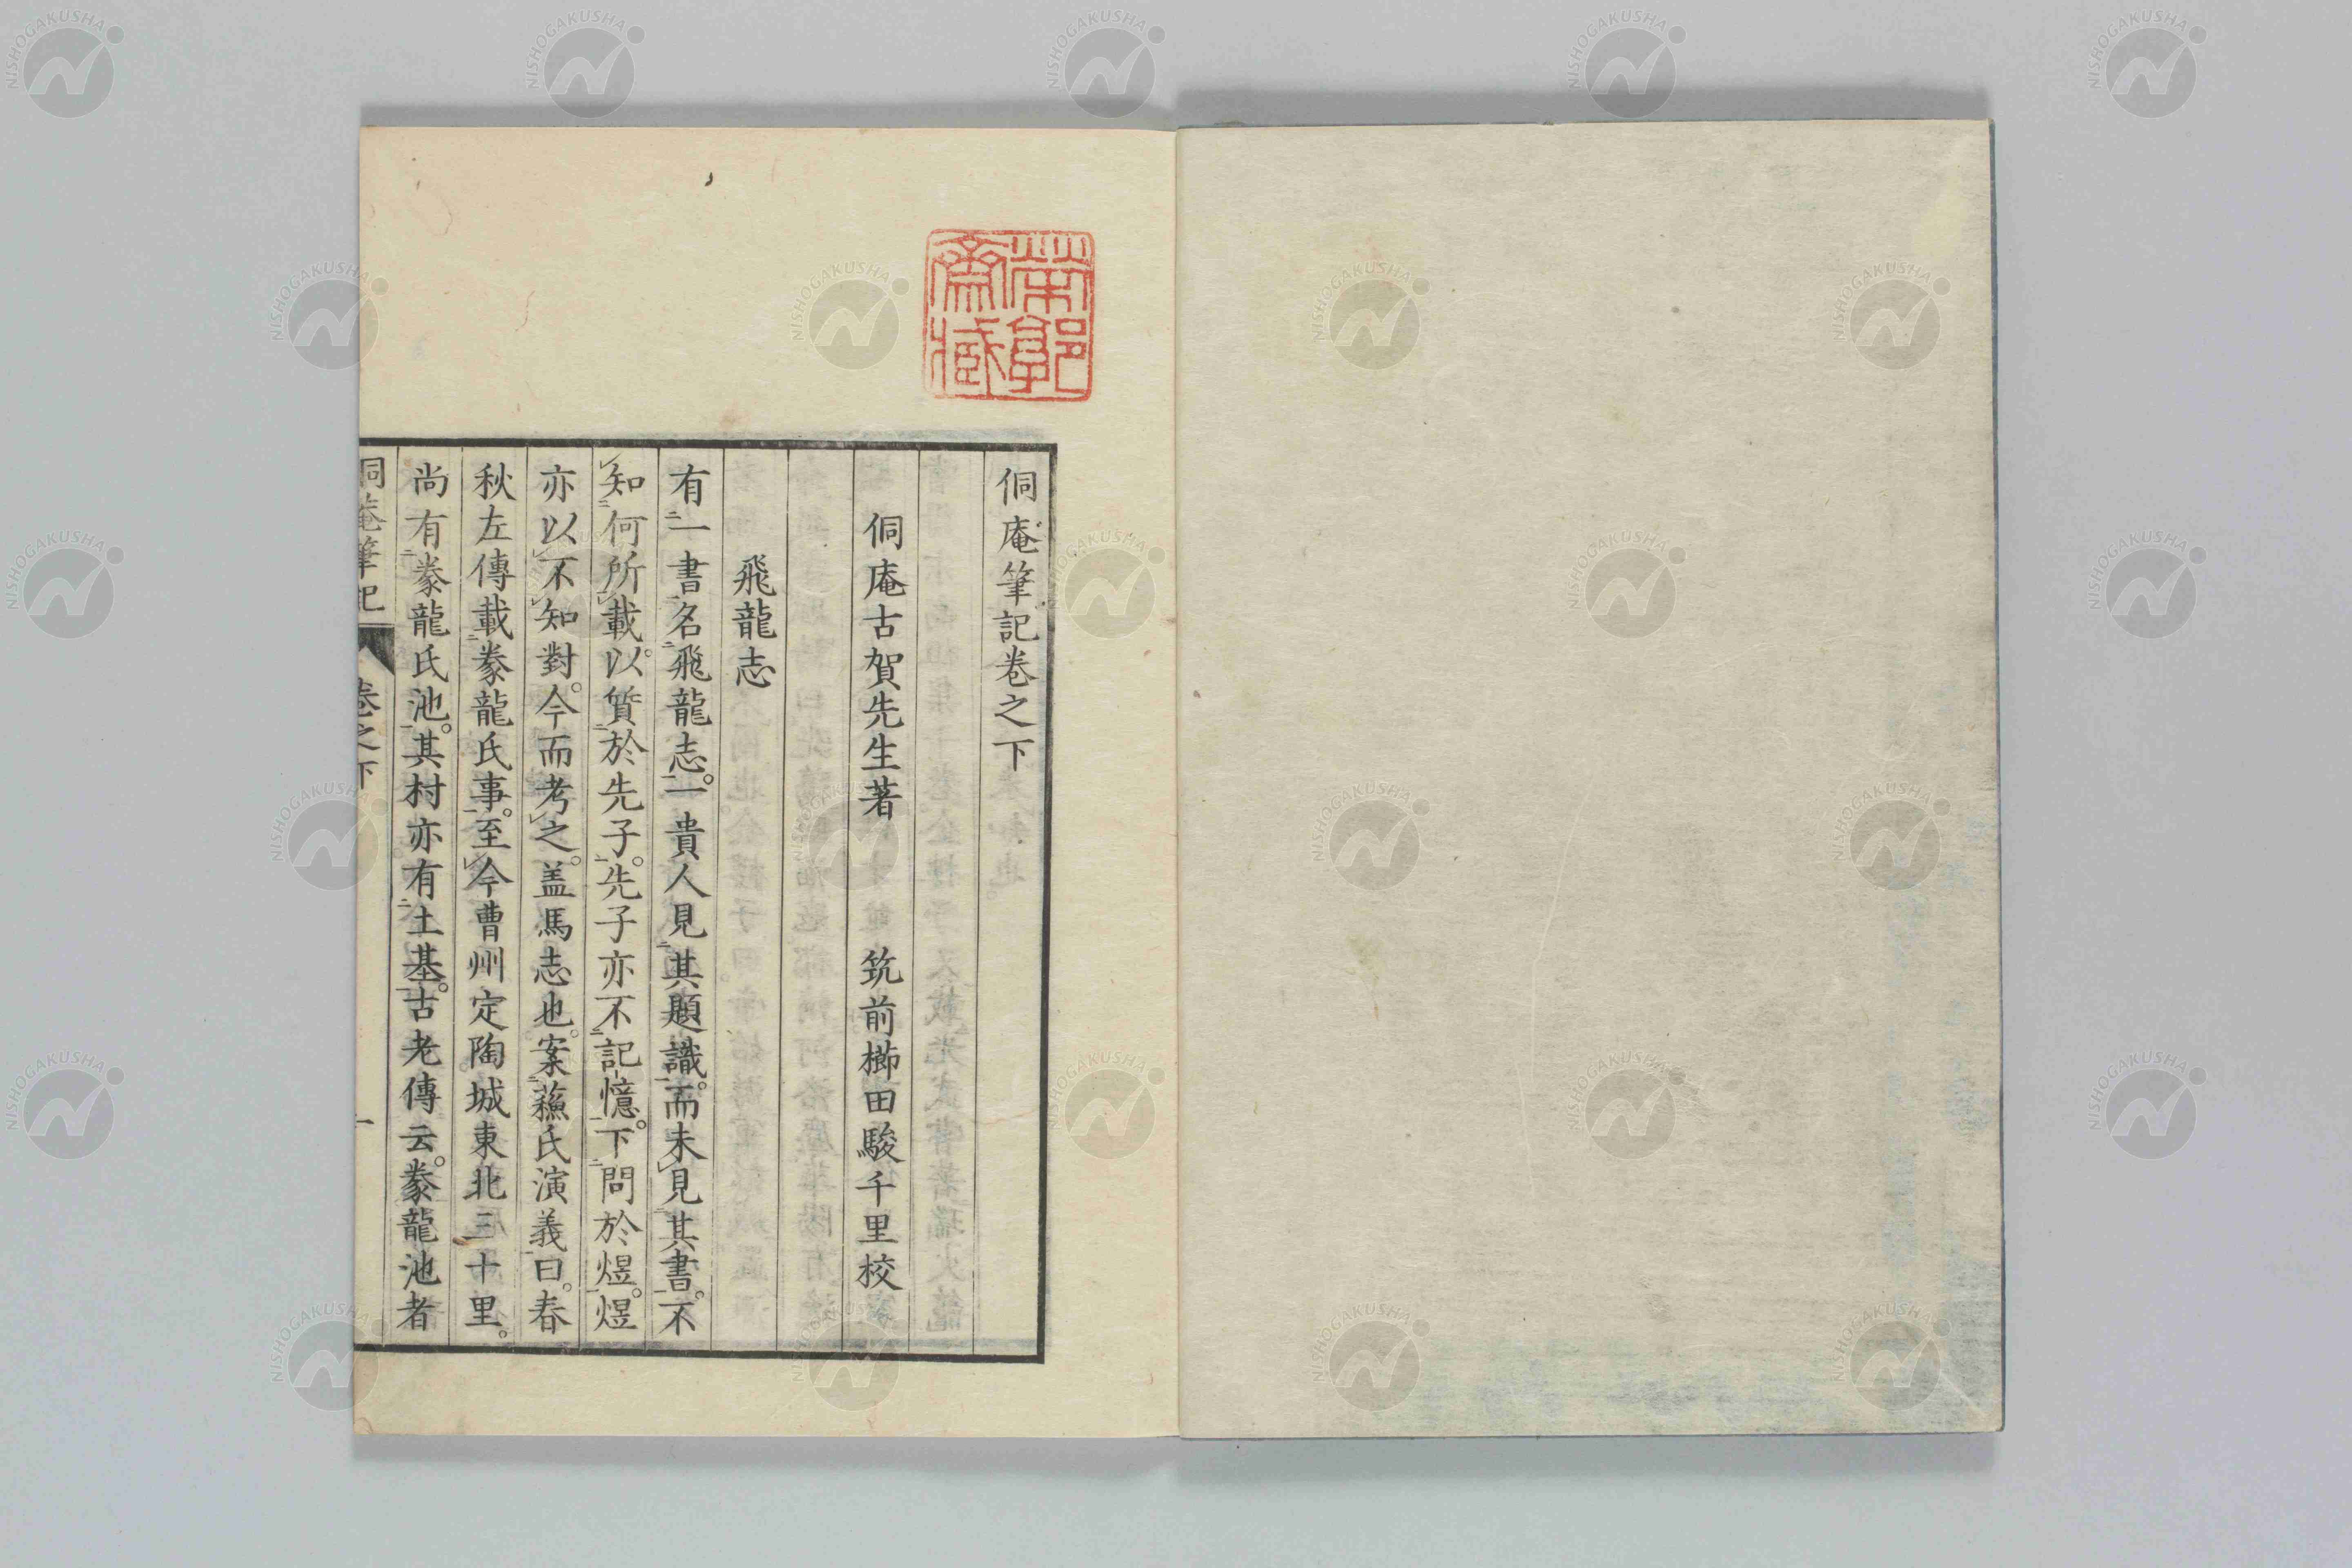 侗庵筆記卷之下
侗庵古賀先生著　筑前櫛田駿千里校
飛龍志
有一書名飛龍志。一貴人見其題識。而未見其書。不
知何所載。以質於先子。先子亦不記憶。下問於煜。煜
亦以不知對。今而考之。盖馬志也。案蘓氏演義曰。春
秋左傳載豢龍氏事。至今曹州定陶城東北三十里。
尚有豢龍氏池。其村亦有土基。古老傳云。豢龍池者
侗庵筆記　卷之下　一
NISHOGAKUSHA